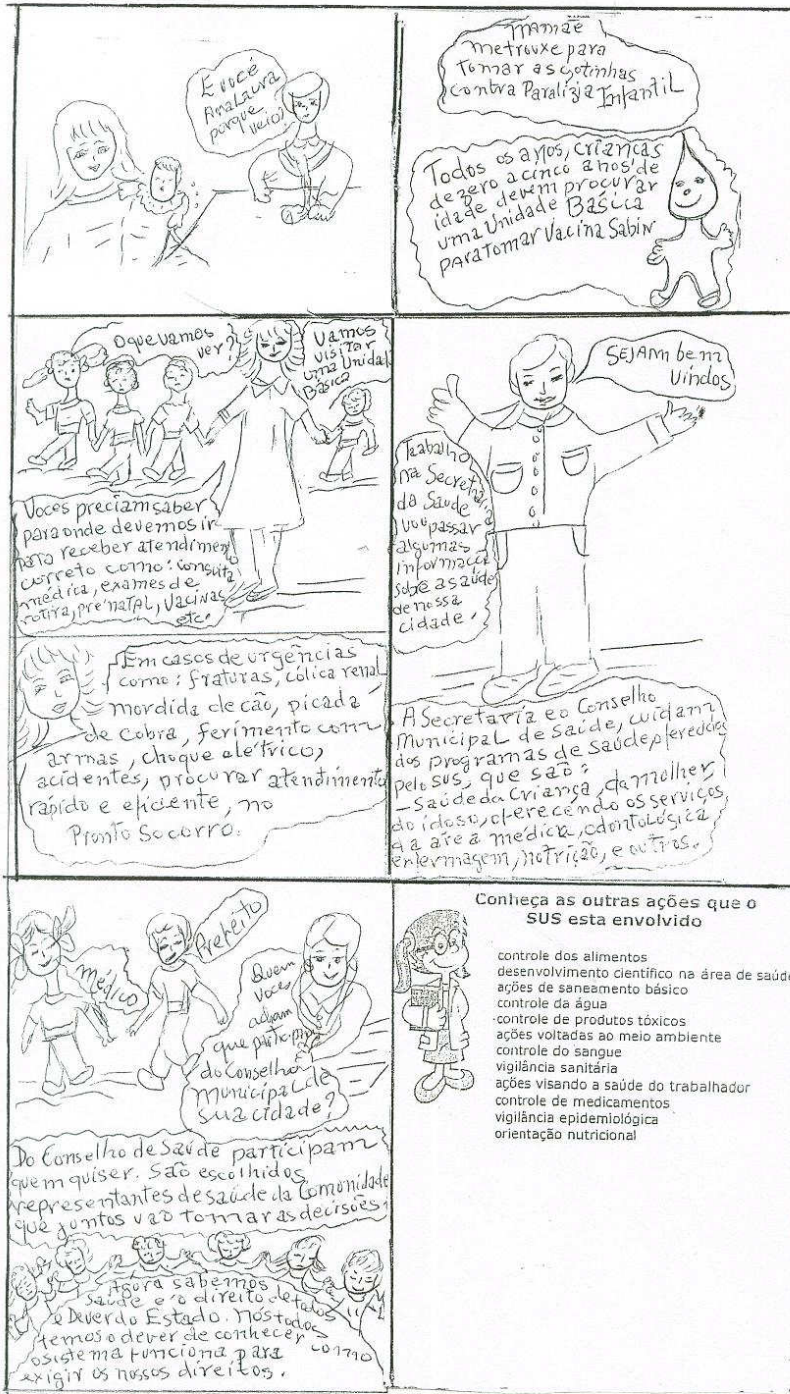 E você
Ana Laura
porque
veio?
mamãe
me trouxe para
tomar as gotinhas
contra Paralizia Infantil
Todos os anos, crianças
de zero a cinco anos de
idade devem procurar
uma Unidade Básica
para tomar Vacina Sabin
O que vamos
ver?
Vamos
visitar
uma Unidade
Básica
Voces preciam saber
para onde devemos ir
para receber atendimento
correto como: consulta
médica, exames de
rotina, pré natal, vacinas
etc.
Em casos de urgências
como: fraturas, cólica renal
mordida de cão, picada
de cobra, ferimento com
armas, choque eletrico,
acidentes, procurar atendimento
rápido e eficiente, no
Pronto Socorro.
SEJAM bem
vindos
Trabalho
na Secretaria
da Saude
vou passar
algumas
informação
sobre a saúde
de nossa
cidade.
A Secretaria e o Conselho
Municipal de Saúde, cuidam
dos programas de saúde oferecidos
pelo SUS, que são:
- Saúde da Criança, da mulher,
do idoso, oferecendo os serviços
da área médica, odontológica
enfermagem, nutrição, e outros.
médico
Prefeito
Quem
voces
acham
que participa
do Conselho
Municipal de
sua cidade?
Do Conselho de Saúde participam
quem quiser. São escolhidos
representantes de saúde da Comunidade
que juntos vão tomar as decisões.
Agora sabemos
Saúde é o direito de todos
e Dever do Estado. Nós todos
temos o dever de conhecer como
o sistema funciona para
exigir os nossos direitos.
Conheça as outras ações que o
SUS esta envolvido
controle dos alimentos
desenvolvimento científico na área de saúde
ações de saneamento básico
controle da água
controle de produtos tóxicos
ações voltadas ao meio ambiente
controle do sangue
vigilância sanitária
ações visando a saúde do trabalhador
controle de medicamentos
vigilância epidemiológica
orientação nutricional